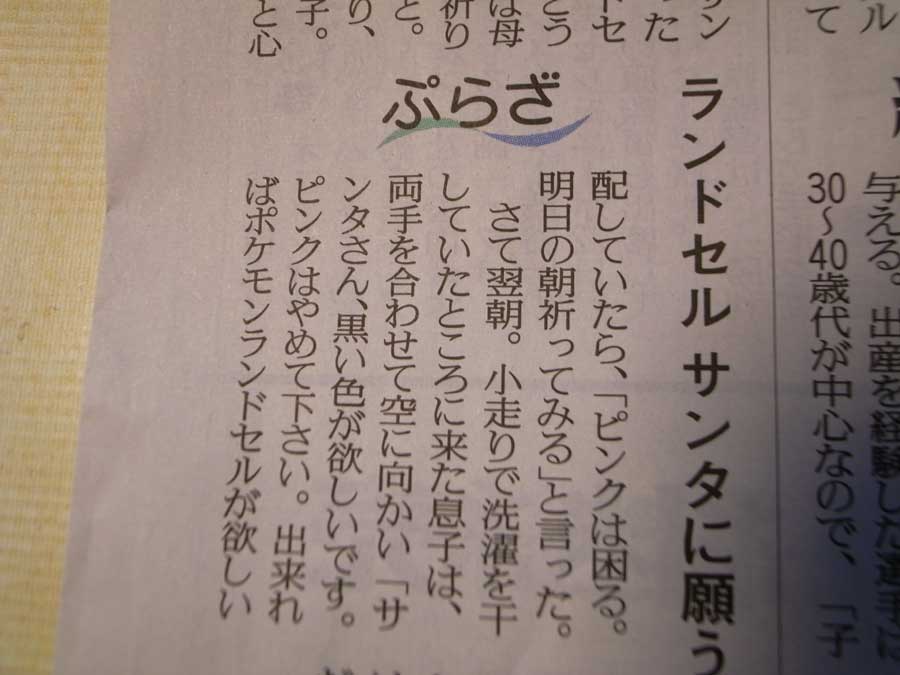 ル
て
与える。出産を経験した選手は
30〜40歳代が中心なので、「子
ランドセル サンタに願う
ぷらざ
サン
った
ドセ
とう
は母
祈り
と。
り、
子。
と心
配していたら、「ピンクは困る。
明日の朝祈ってみる」と言った。
さて翌朝。小走りで洗濯を干
していたところに来た息子は、
両手を合わせて空に向かい「サ
ンタさん、黒い色が欲しいです。
ピンクはやめて下さい。出来れ
ばポケモンランドセルが欲しい